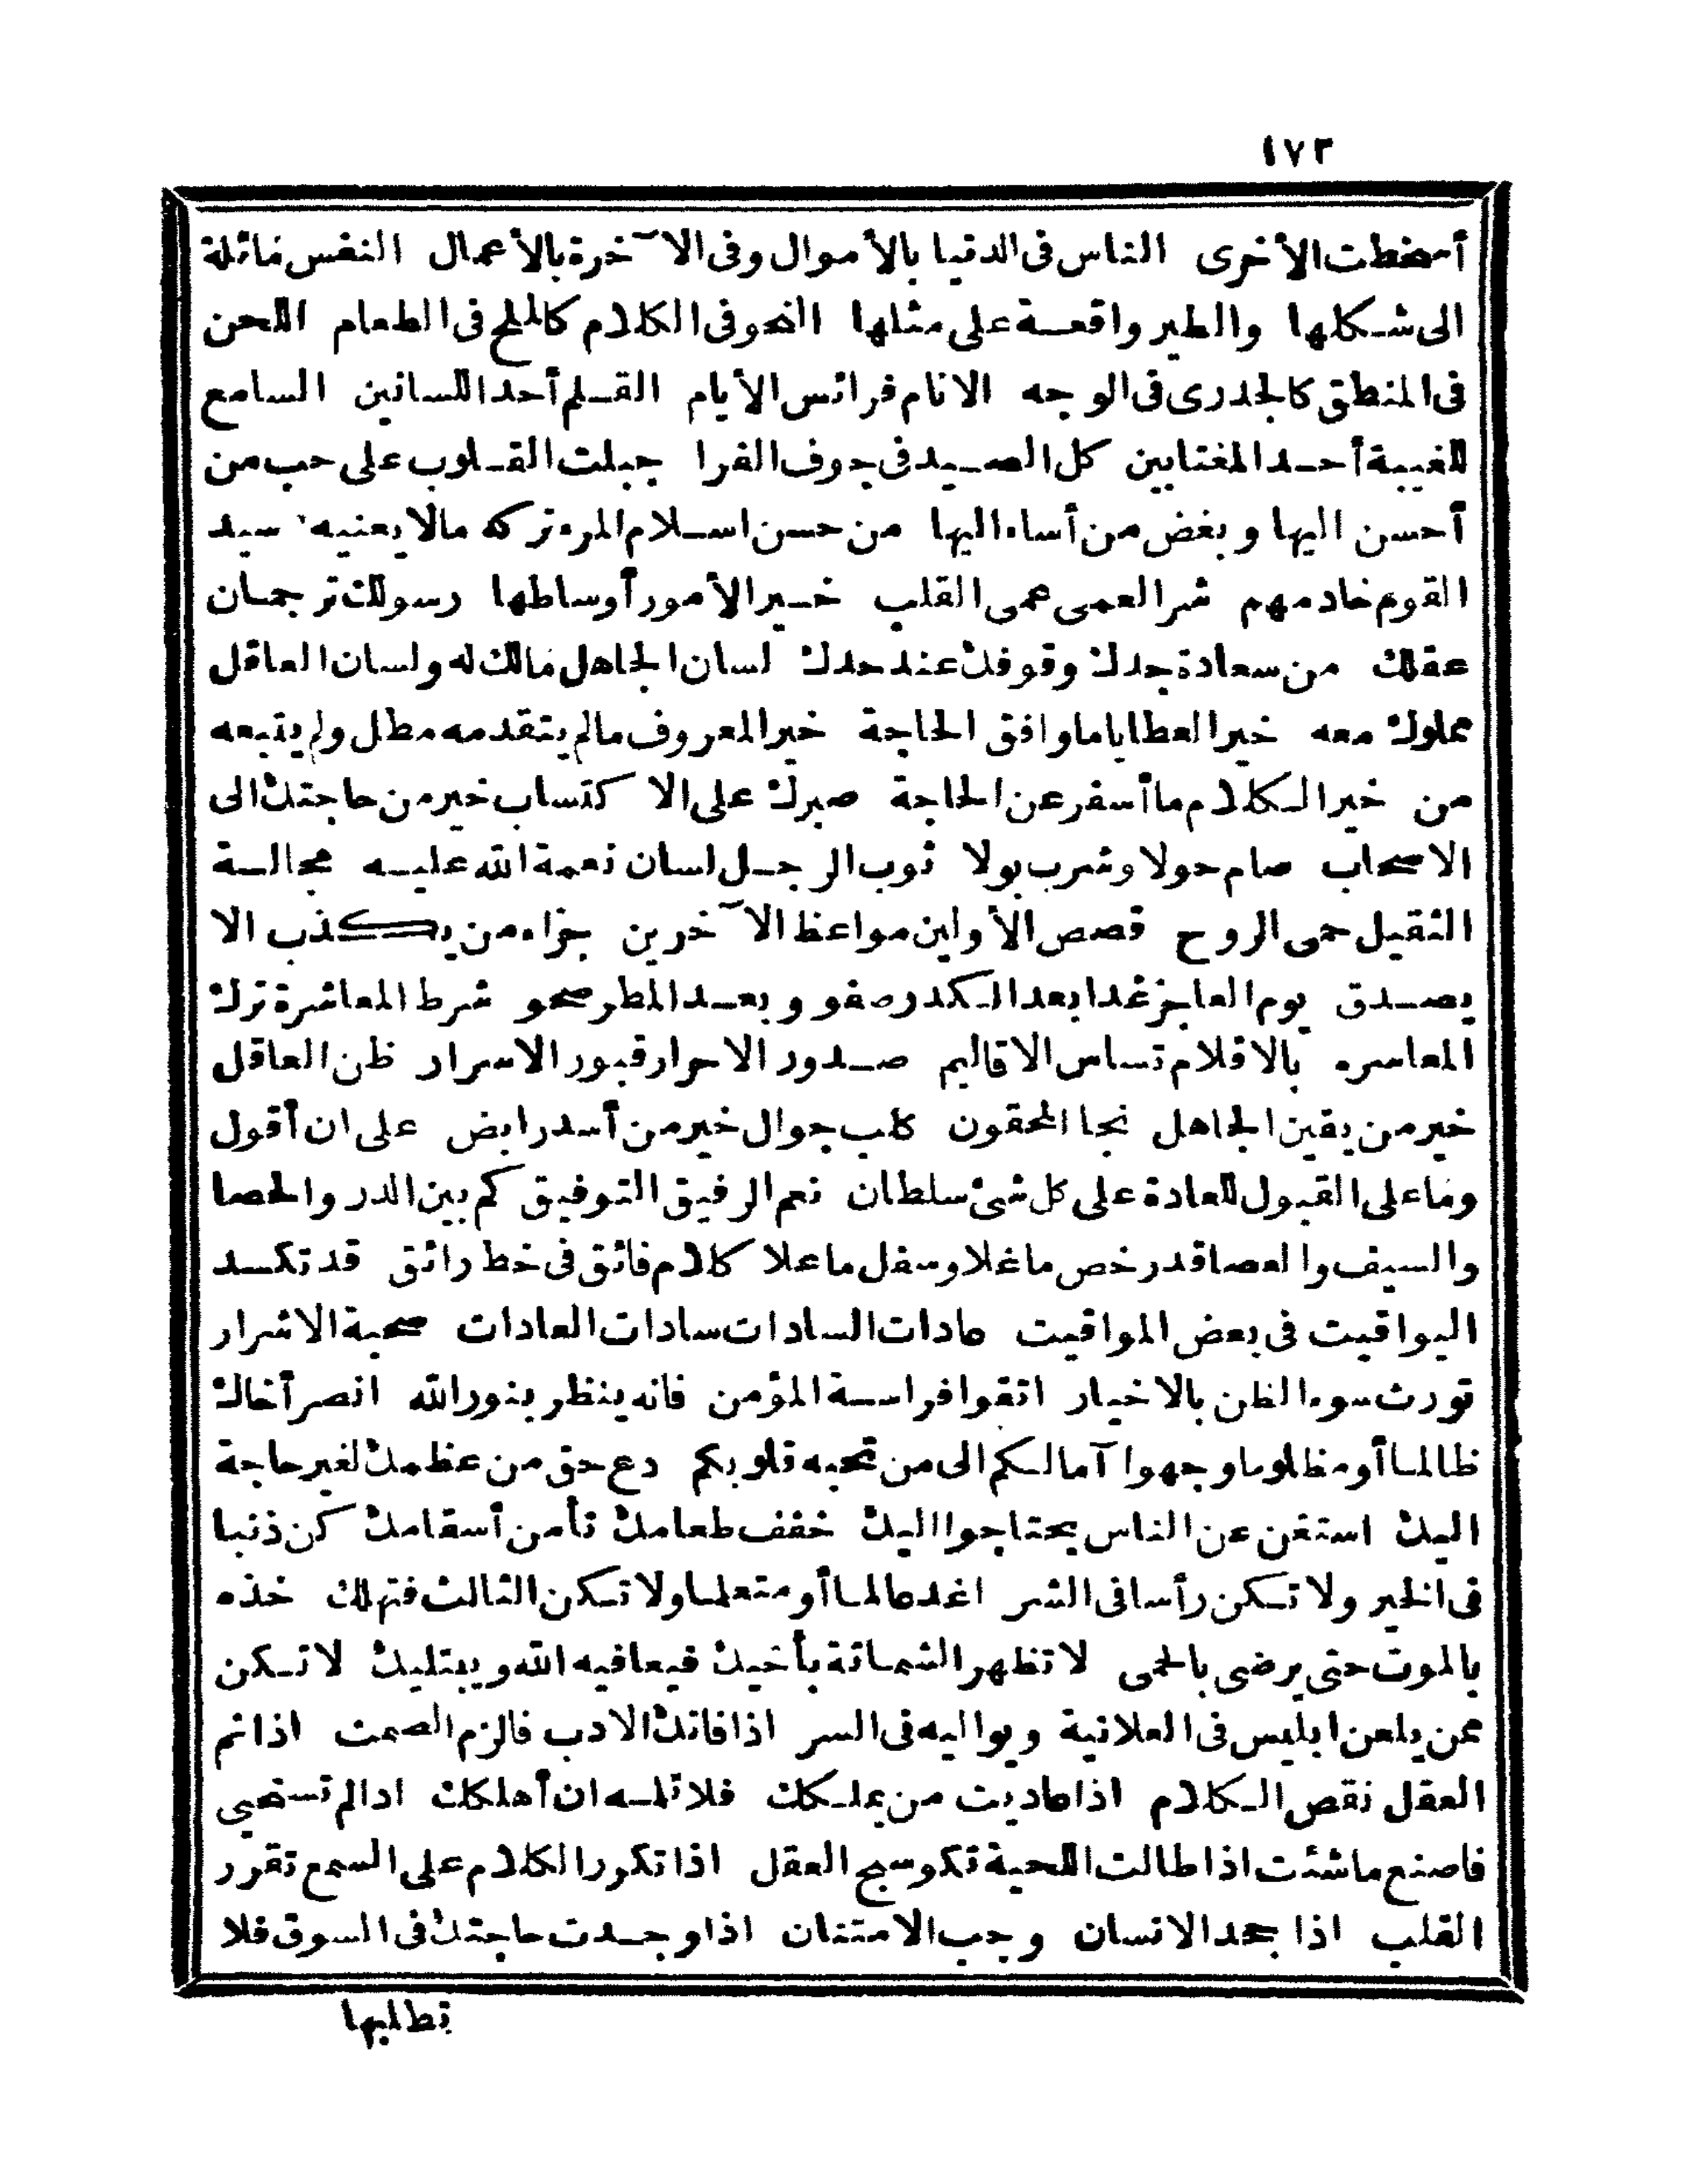 ١٧٣
أسخطت الأخرى الناس فى الدنيا بالأموال وفى الآخرة بالأعمال النفس مائلة
الى شكلها والطير واقعة على مثلها النحو فى الكلام كالملح فى الطعام اللحن
فى المنطق كالجدرى فى الوجه الانام فرائس الأيام القلم أحد اللسانين السامع
للغيبة أحد المغتابين كل الصيد فى جوف الفرا جبلت القلوب على حب من
أحسن اليها وبغض من أساء اليها من حسن اسلام المرء تركه مالا يعنيه سيد
القوم خادمهم شر العمى عمى القلب خير الأمور أوساطها رسولك ترجمان
عقلك من سعادة جدك وقوفك عند حدك لسان الجاهل مالك له ولسان العاقل
مملوك معه خير العطايا ما وافق الحاجة خير المعروف مالم يتقدمه مطل ولم يتبعه
من خير الكلام ما أسفر عن الحاجة صبرك على الاكتساب خير من حاجتك الى
الاصحاب صام حولا وشرب بولا ثوب الرجل لسان نعمة الله عليه مجالسة
الثقيل حمى الروح قصص الأولين مواعظ الآخرين جزاء من يكذب الا
يصدق يوم العاجز غدا بعد الكدر صفو وبعد المطر صحو شرط المعاشرة ترك
المعاسره بالاقلام تساس الاقاليم صدور الاحرار قبور الاسرار ظن العاقل
خير من يقين الجاهل نجا المخفون كلب جوال خير من أسد رابض على ان أقول
وما على القبول للعادة على كل شئ سلطان نعم الرفيق التوفيق كم بين الدر والحصا
والسيف والعصا قد رخص ما غلا وسفل ما علا كلام فائق فى خط رائق قد تكسد
اليواقيت فى بعض المواقيت عادات السادات سادات العادات صحبة الاشرار
تورث سوء الظن بالاخيار اتقوا فراسة المؤمن فانه ينظر بنور الله انصر أخاك
ظالما أو مظلوما وجهوا آمالكم الى من تحبه قلوبكم دع حق من عظمك لغير حاجة
اليك استغن عن الناس يحتاجوا اليك خفف طعامك تأمن أسقامك كن ذنبا
فى الخير ولا تكن رأسا فى الشر اغد عالما أو متعلما ولا تكن الثالث فتهلك خذه
بالموت حتى يرضى بالحمى لا تظهر الشماتة بأخيك فيعافيه الله ويبتليك لا تكن
ممن يلعن ابليس فى العلانية ويواليه فى السر اذا فاتك الادب فالزم الصمت اذا تم
العقل نقص الكلام اذا عاديت من يملكك فلا تلمه ان أهلكك اذا لم تستحى
فاصنع ما شئت اذا طالت اللحية تكوسج العقل اذا تكرر الكلام على السمع تقرر
القلب اذا جحد الانسان وجب الامتنان اذا وجدت حاجتك فى السوق فلا
تطلبها